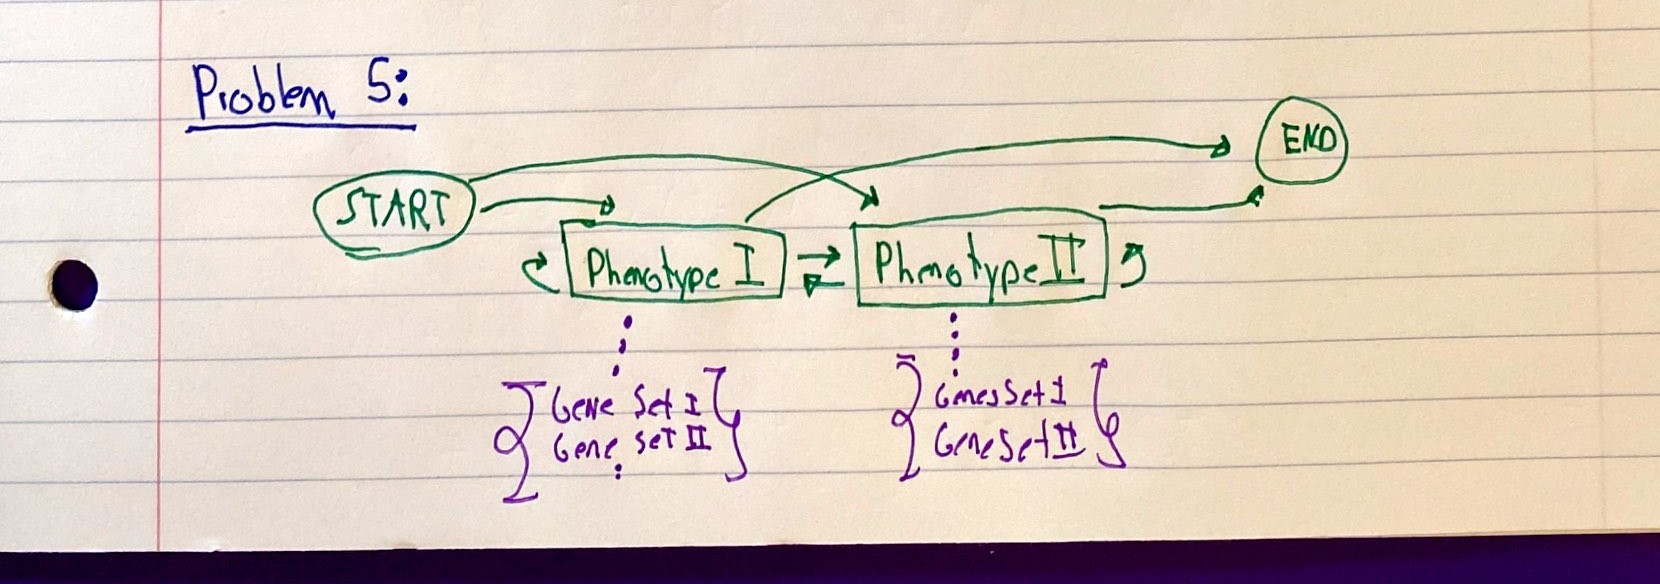 Problem 5:
END
START
Phenotype I
Phenotype II
Gene Set I
Gene Set II
Genes Set I
Gene Set II